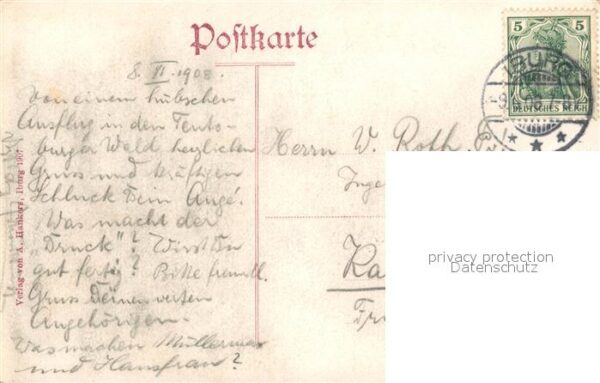 Postkarte
5 5
DEUTSCHES REICH
IBURG
8. VI. 1908.
Von einem hübschen
Ausflug in den Teuto-
burger Wald herzlichen
Gruss und kräftigen
Schluck Dein Angé.
Was macht der
„Druck"? Wirst Du
gut fertig? Bitte freundl.
Gruss Deinen werten
Angehörigen.
Was machen
und Hausfrau?
Herrn W. Roth
Inge
Ka
Verlag von A. Hankers, Iburg 1907
privacy protection
Datenschutz